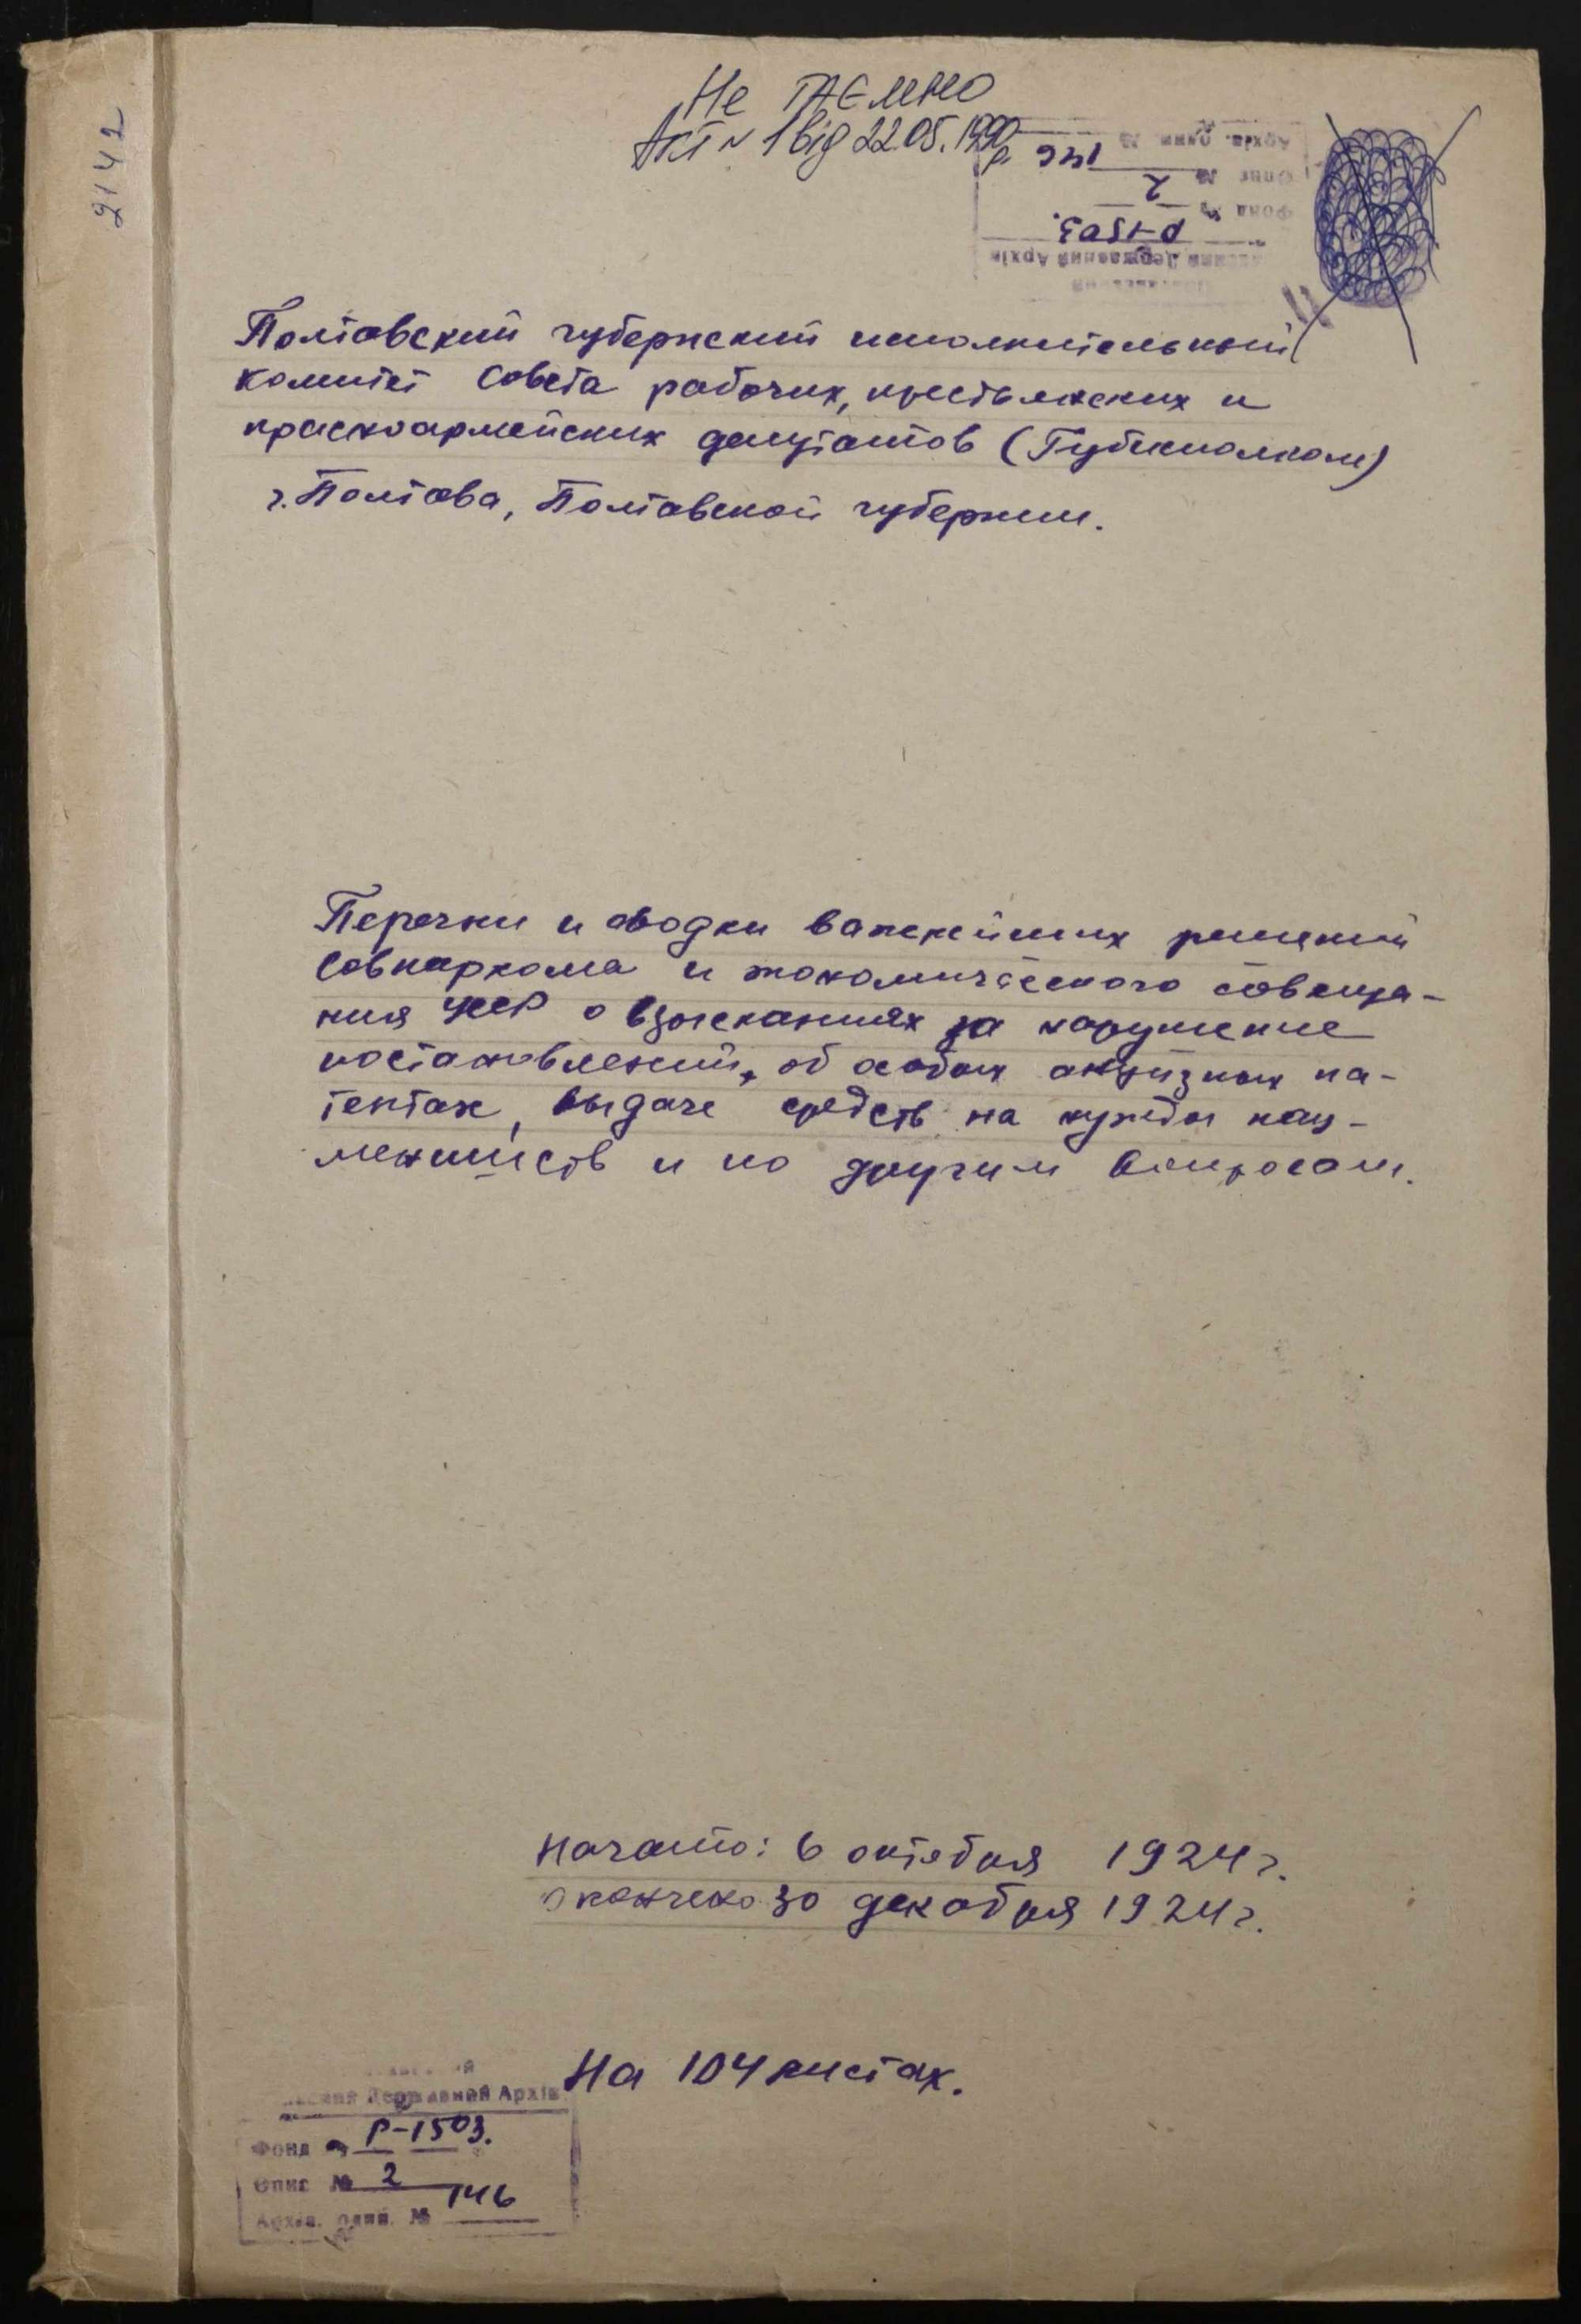 2142
Не ТАЄМНО
Акт N 1 від 22.05.1990р
Архів. один. № 146
Опис № 2
Фонд № Р-1503.
Державний Архів
Полтавский губернский исполнительный
комитет Совета рабочих, крестьянских и
красноармейских депутатов (Губисполком)
г. Полтава, Полтавской губернии.
Перечни и сводки важнейших решений
Совнаркома и экономического совеща-
ния УССР о взысканиях за нарушение
постановлений, об особых акцизных па-
тентах, выдаче средств на нужды нац-
меншинств и по другим вопросам.
Начато: 6 октября 1924 г.
Окончено 30 декабря 1924 г.
На 104 листах.
Державний Архів
Фонд № Р-1503.
Опис № 2
Архів. один. № 146